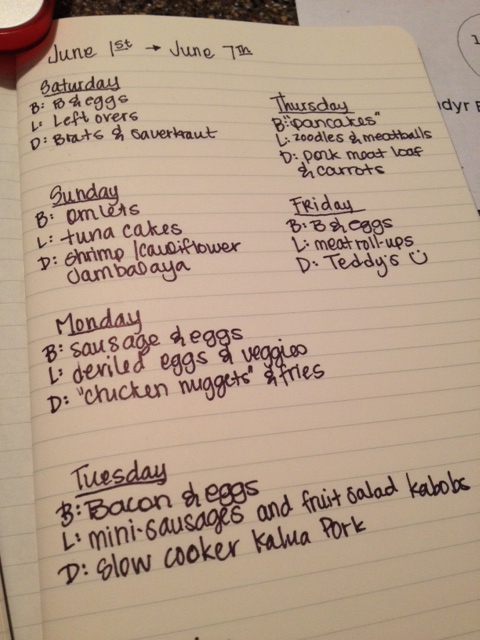 June 1st → June 7th
Saturday
B: B & eggs
L: Left overs
D: Brats & Sauerkraut
Sunday
B: omlets
L: tuna cakes
D: shrimp/cauliflower
Jambalaya
Monday
B: sausage & eggs
L: deviled eggs & veggies
D: "chicken nuggets" & fries
Tuesday
B: Bacon & eggs
L: mini-sausages and fruit salad kabobs
D: Slow cooker Kalua Pork
Thursday
B: "pancakes"
L: zoodles & meatballs
D: pork meat loaf
& carrots
Friday
B: B & eggs
L: meat roll-ups
D: Teddy's ☺
1